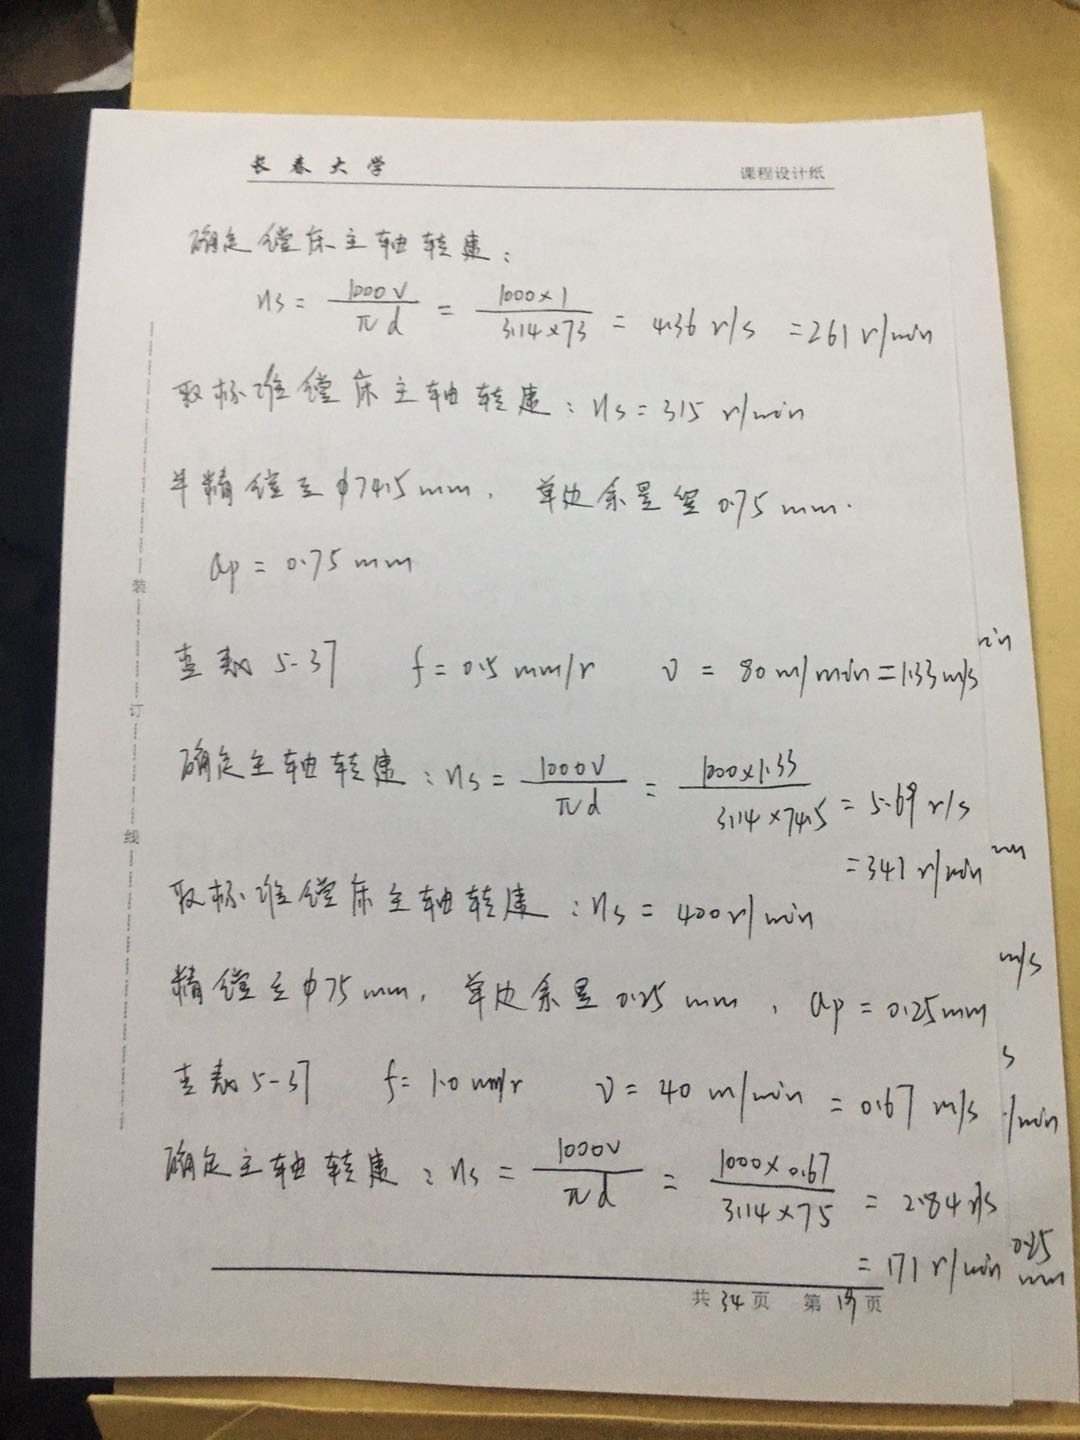 长春大学 课程设计纸
确定镗床主轴转速：
ns = 1000v / πd = 1000×1 / 3.14×73 = 4.36 r/s = 261 r/min
取标准镗床主轴转速：ns = 315 r/min
半精镗至φ74.5mm， 单边余量留0.75mm.
ap = 0.75mm
装
查表 5-37 f = 0.5 mm/r v = 80 m/min = 1.33 m/s
订
确定主轴转速：ns = 1000v / πd = 1000×1.33 / 3.14×74.5 = 5.69 r/s
线
= 341 r/min
取标准镗床主轴转速：ns = 400 r/min
m/s
精镗至φ75mm, 单边余量0.25mm , ap = 0.25mm
s
查表 5-37 f = 1.0 mm/r v = 40 m/min = 0.67 m/s
/min
确定主轴转速：ns = 1000v / πd = 1000×0.67 / 3.14×75 = 2.84 r/s
= 171 r/min
mm
共34页 第 页